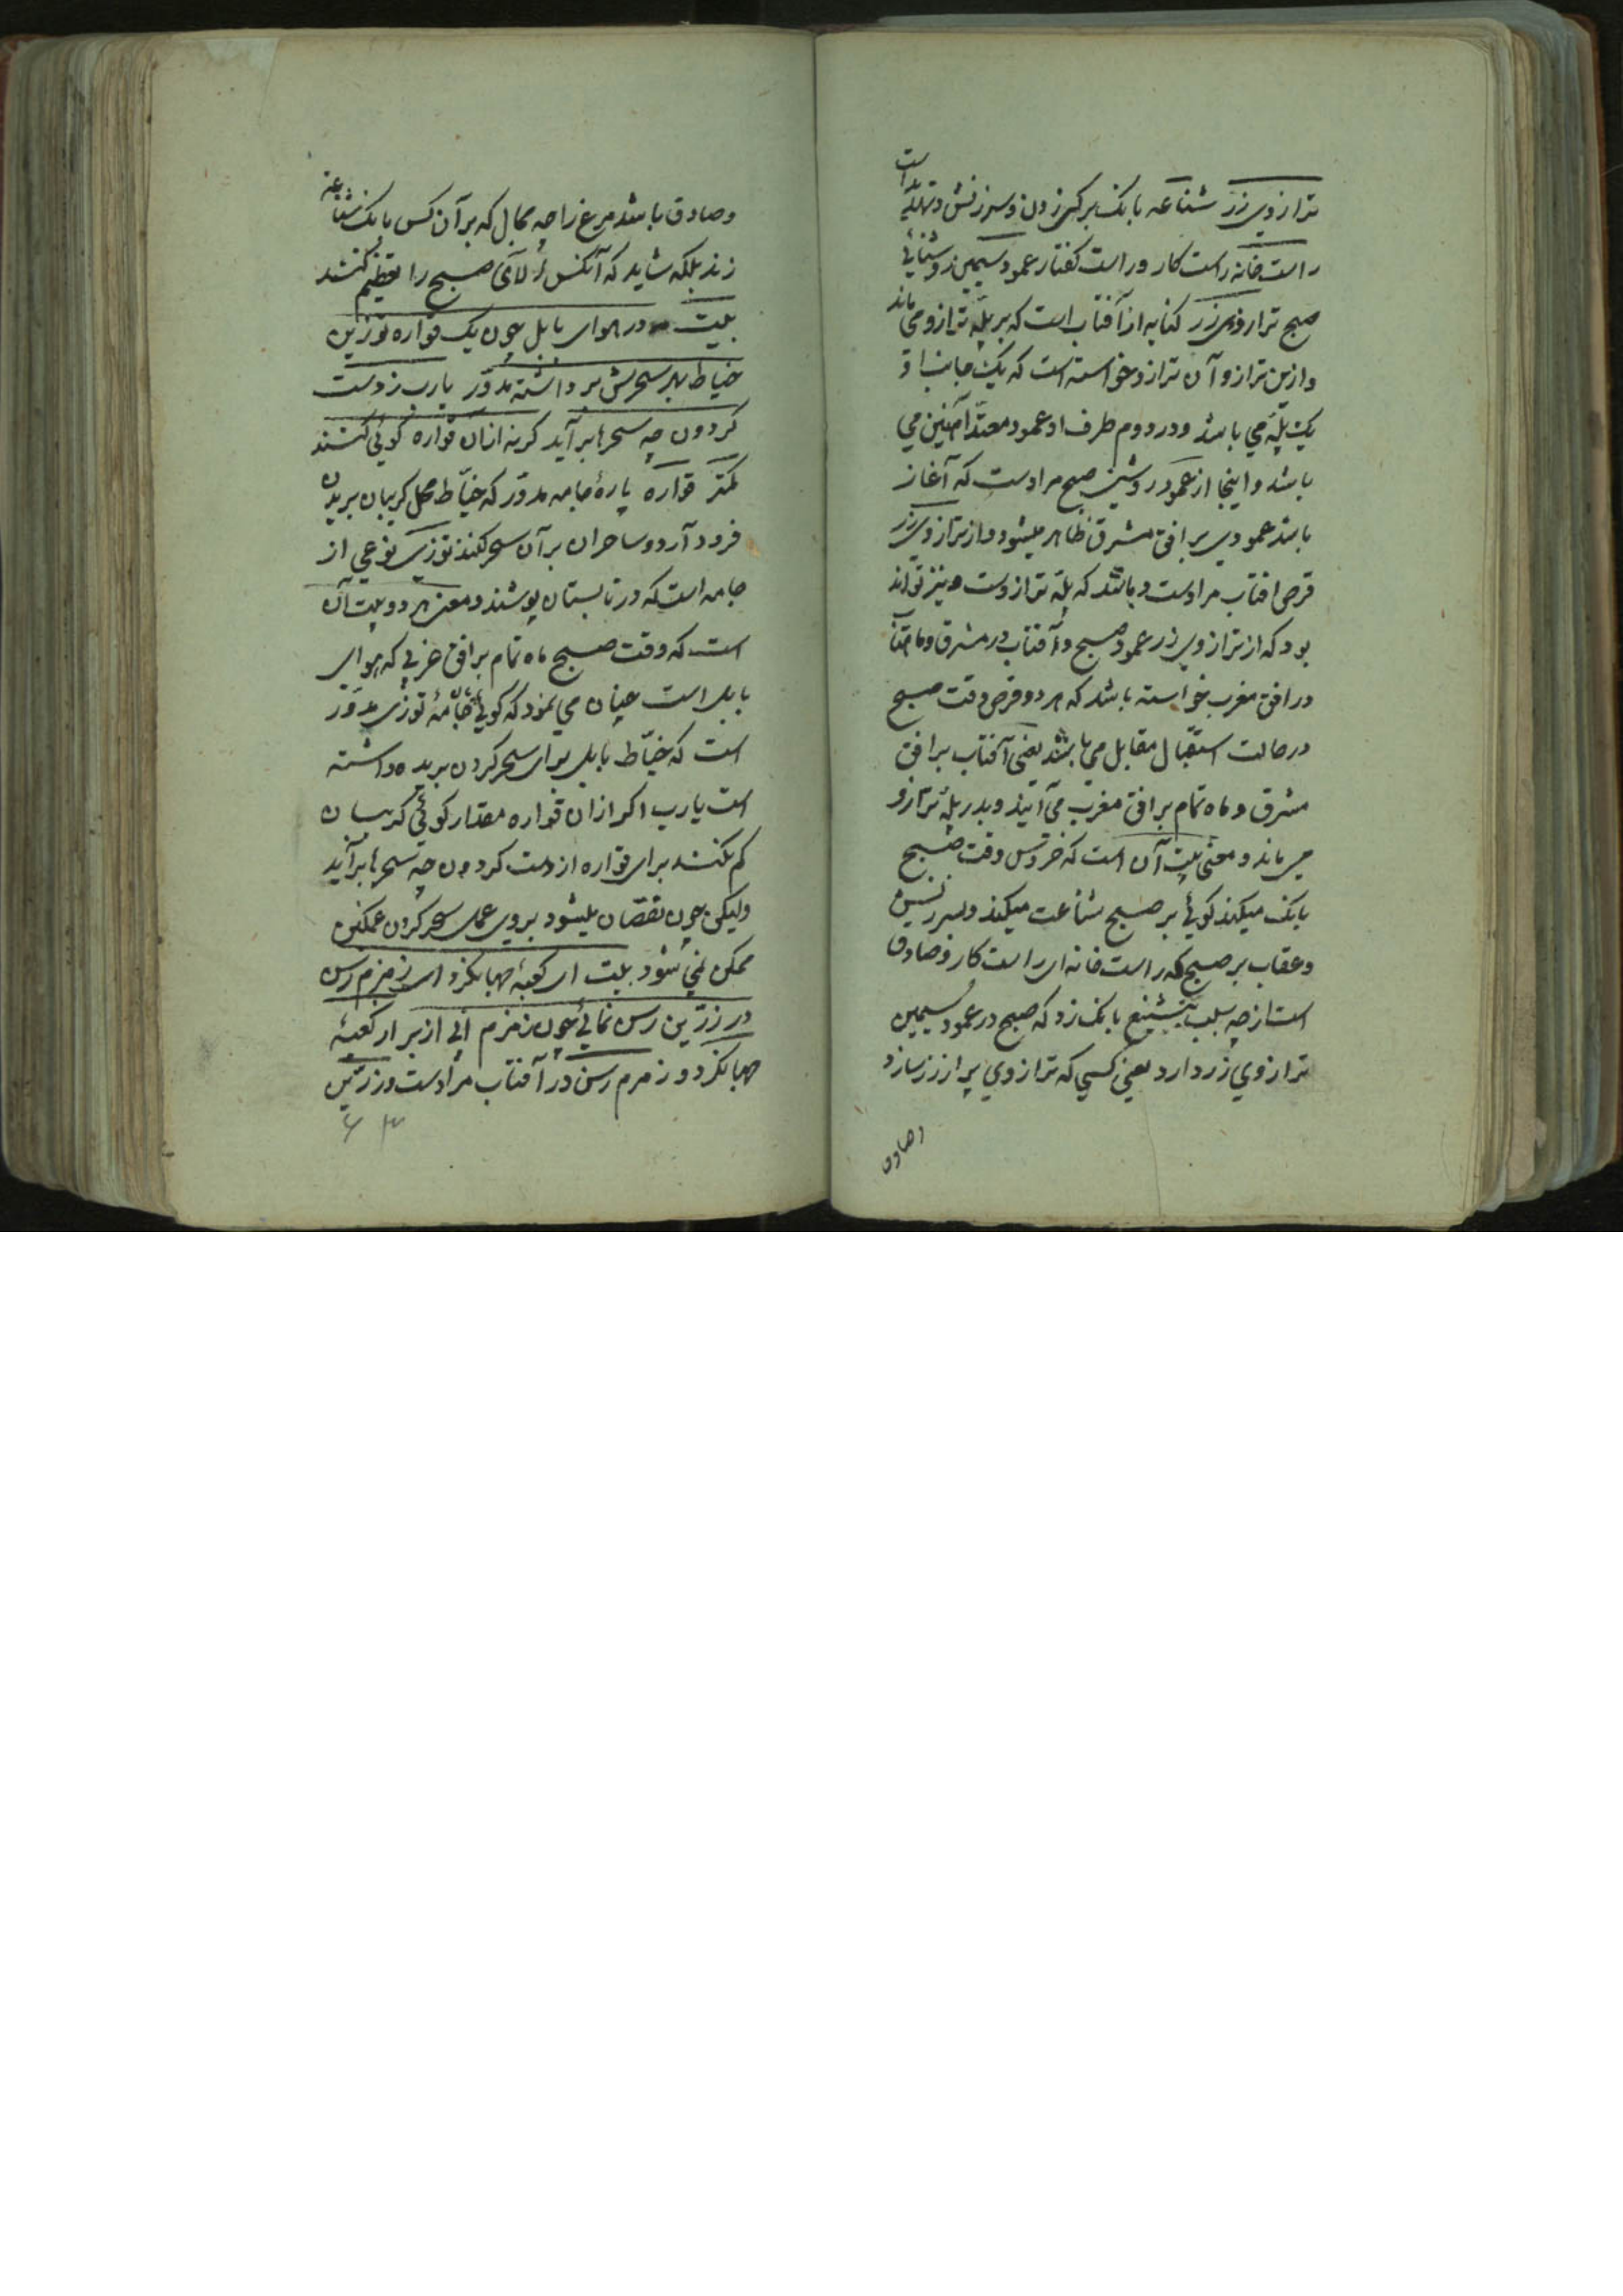 ترازوی زر شناعه بانک بر کسی زدن و سرزنش و تهدید است
راست خانه راست کار و راست کفتار عمود سیمین روشنائی
صبح ترازوی زر کنایه از آفتاب است که بر پلّه ترازو می ماند
و ازین ترازو آن ترازو خواسته است که یک جانب او
یک پلّه می باشد و در دوم طرف او عمود معتد آهنین می
باشد و اینجا از عمود روشنی صبح مرادست که آغاز
باشد عمودی بر افق مشرق ظاهر میشود و از ترازوی زر
قرص افتاب مرادست و باشد که پلّه ترازوست و نیز تواند
بود که از ترازوی زر عمود صبح و آفتاب در مشرق و ماهتاب
در افق مغرب خواسته باشد که هر دو قرص وقت صبح
در حالت استقبال مقابل می باشد یعنی آفتاب بر افق
مشرق و ماه تمام بر افق مغرب می آیند و بدر پلّه ترازو
می ماند و معنی بیت آن است که خروس وقت صبح
بانک میکند کوئی بر صبح شناعت میکند و سرزنش
و عقاب بر صبح که راست خانه ای راست کار و صادق
است از چه سبب تشنیع بانک زد که صبح در عمود سیمین
ترازوی زر دارد یعنی کسی که ترازوی پر از زر سازد
وصادق
و صادق باشد مرغ را چه مجال که بر آن کس بانک شناعه
زند بلکه شاید که آنکس لآلی صبح را تعظیم کنند
بیت در هوای بابل چون یک قواره توزین
خیاط بهر سحرش برداشته مدوّر یارب ز دست
کردون چه سحرها برآید کر نه ازان قواره کوئی کنند
کمتر قواره پارۀ جامه مدوّر که خیّاط محل کریبان بریدن
فرود آرد و ساحران بر آن سحر کنند توزی نوعی از
جامه است که در تابستان پوشند و معنی هر دو بیت آن
است که وقت صبح ماه تمام بر افق غربی که هوای
بابل است چنان می نمود که کوئی جامۀ توزی مدوّر
است که خیّاط بابل برای سحر کردن بریده داشته
است یارب اکر ازان قواره مقدار کوئی کریبان
کم نکنند برای قواره از دست کردون چه سحرها برآید
ولیکن چون نقصان میشود بروی عمل سحر کردن
ممکن نمی شود بیت ای کعبۀ جهانکرد ای زمزم رسن
در زرّین رسن نمائی چون زمزم آئی از بر ار کعبۀ
جهانکرد و زمزم رسن در آفتاب مرادست و زرّین
۶۳